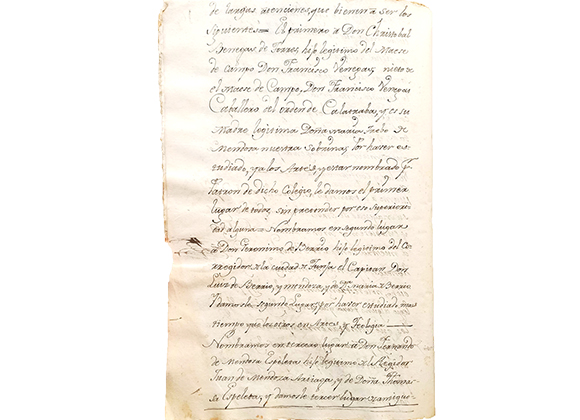 de largas atenciones, que bienen a ser los
siguientes= El primero a Don Christobal
Benegas de Torres, hijo legitimo del Maese
de campo Don Francisco Venegas, nieto de
el maese de Campo, Don Francisco Venegas
Cavallero del orden de Calatraba, y es su
Madre legitima Doña Maria de
Mendosa nuestra sobrina, por haver es-
tudiado, ya los Artes, y estar nombrado p.
Patron de dicho Colegio, le damos el primer
lugar de todos, sin pretender por eso superiori-
dad alguna = Nombramos en segundo lugar
a Don Geronimo de Berrio hijo legitimo del Co-
rregidor de la ciudad de Tunja el Capitan Don
Luis de Berrio, y mendosa, y de Maria de Berrio
Y damosle segundo lugar, por haver estudiado mas
tiempo que los otros en Artes, y Teologia
Nombramos en tercero lugar a Don Fernando
de Mendosa Espeleta hijo legitimo de el Regidor
Juan de Mendoza Artiaga, y de Doña Thoma-
sa Espeleta, y damosle tercer lugar